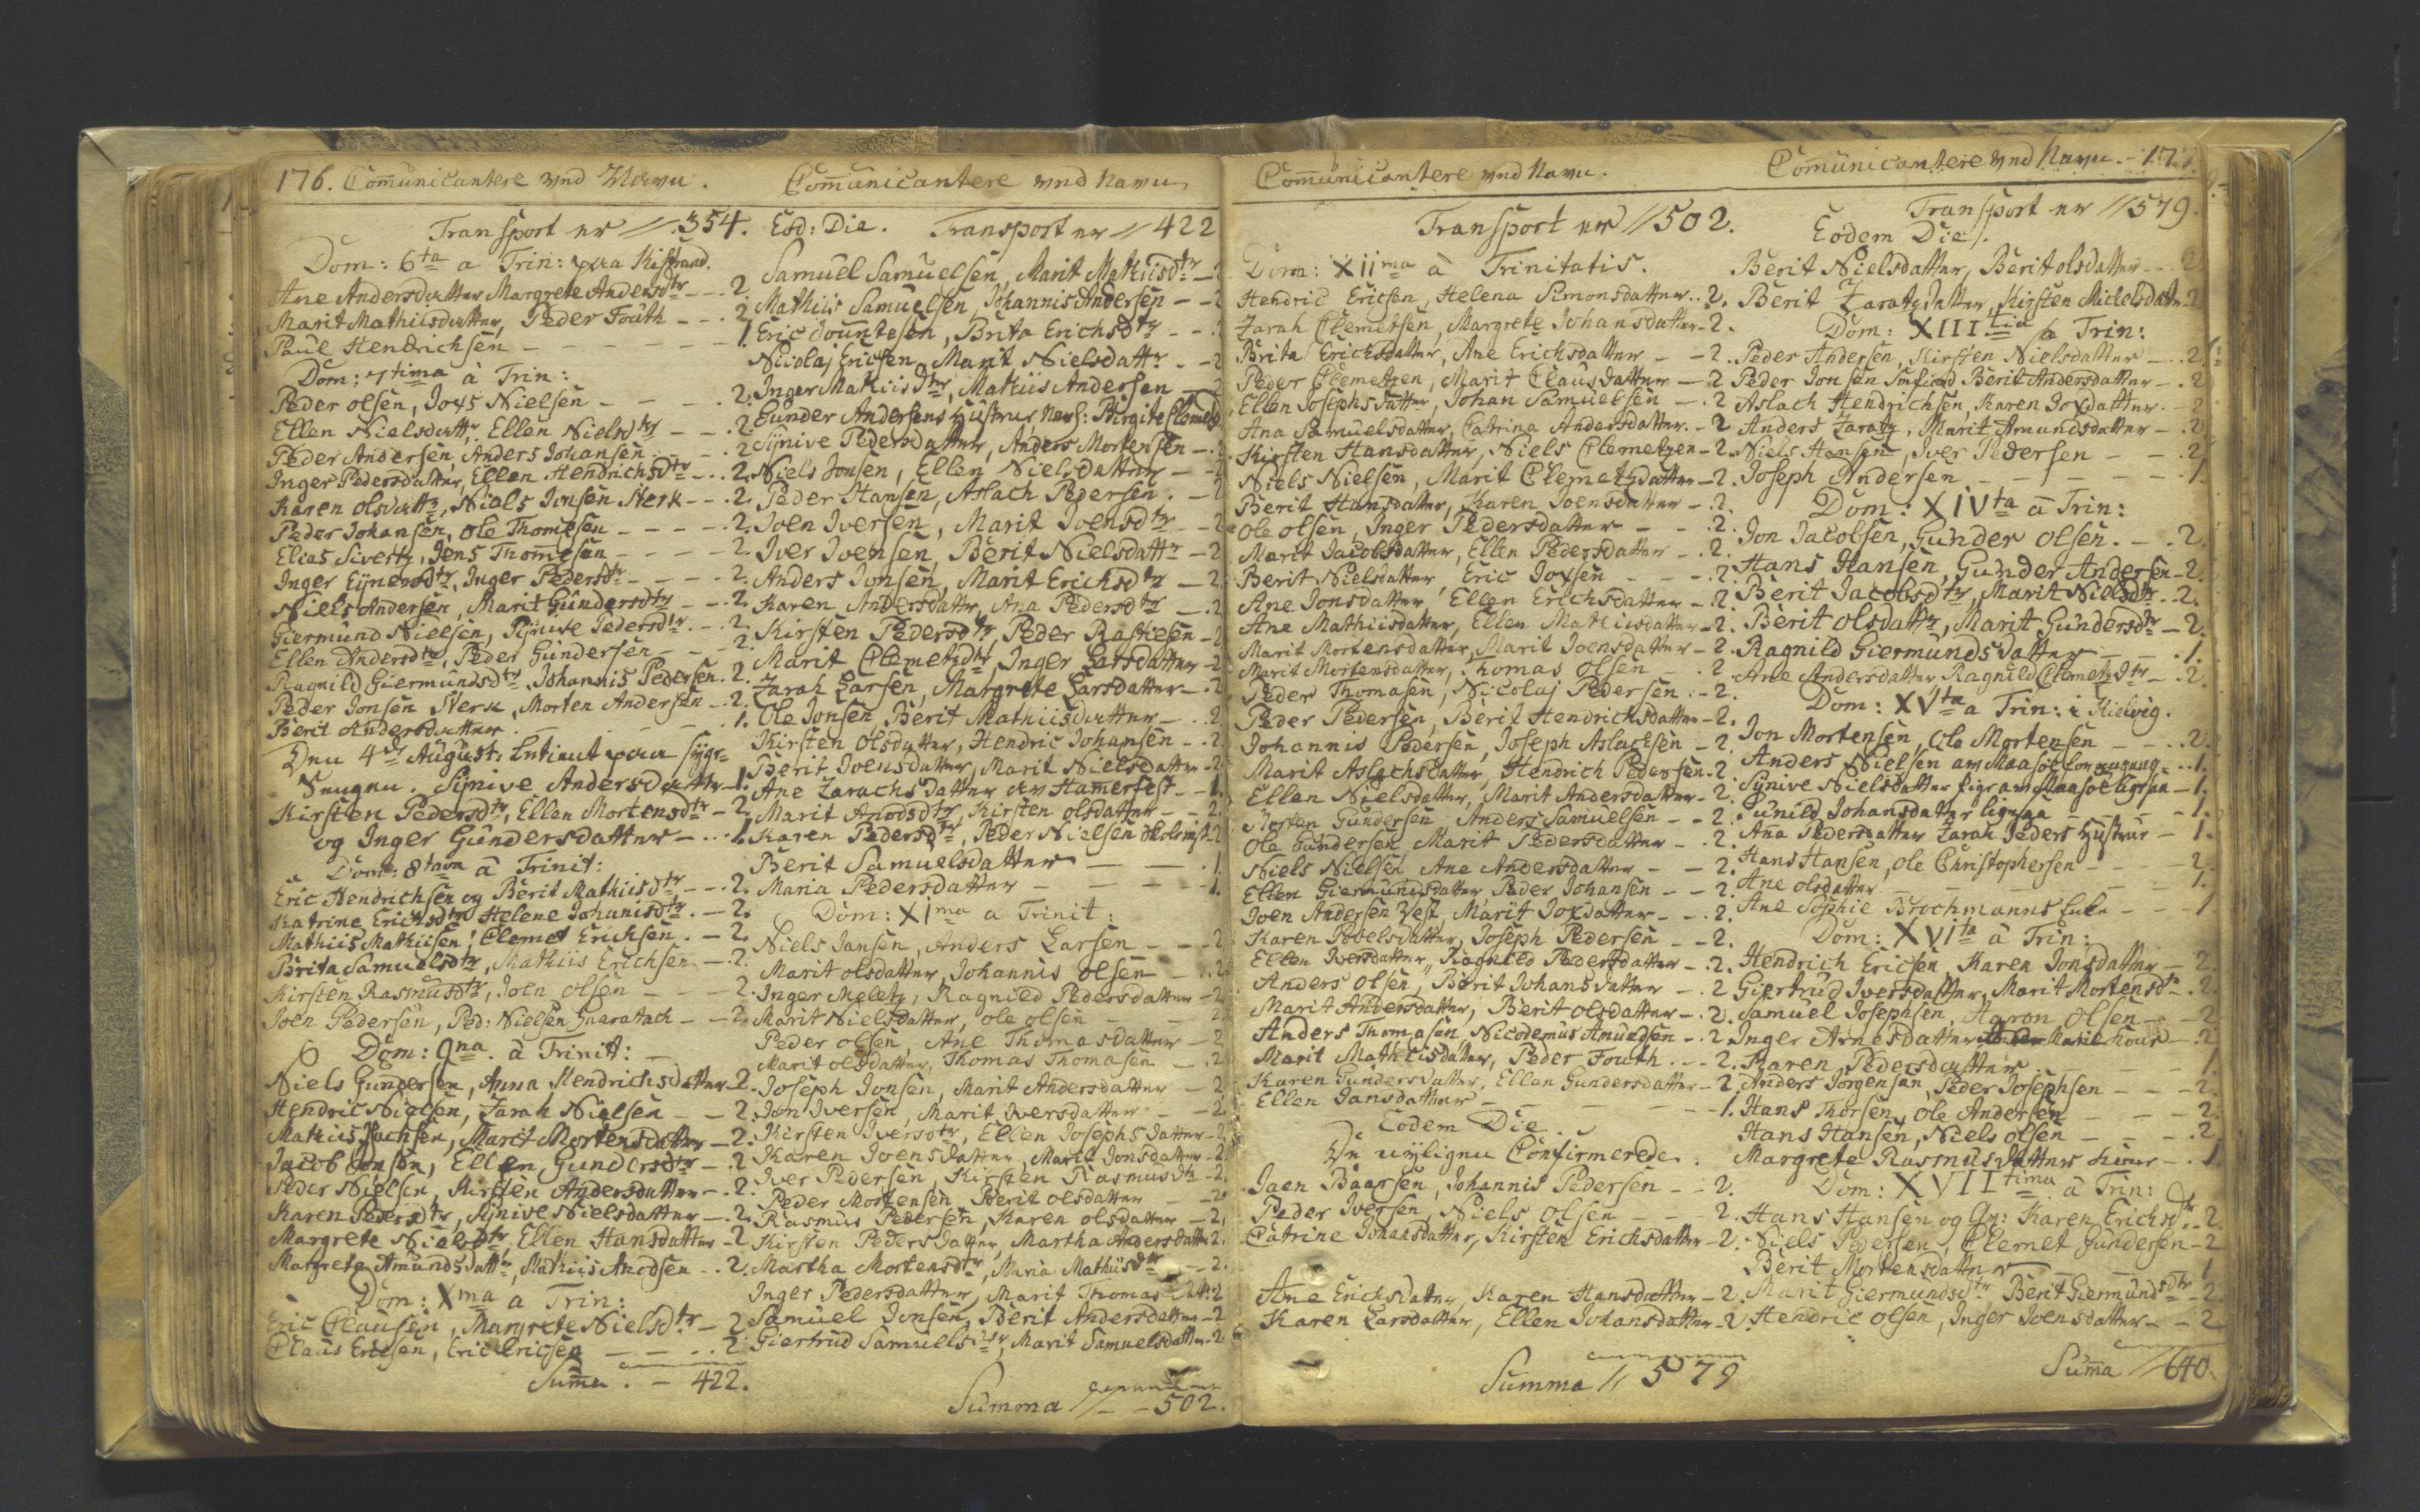 176. Communicantere ved Navn.
Transport er // 354.
Dom: 6ta a Trin: paa Kistrand.
Ane Andersdatter Margrete Andersdtr - - 2
Marit Mathiisdatter, Peder Fouth - - 2
Paul Hendrichsen - - 1.
Dom: 7tima à Trin:
Peder Olsen, Nielsen - - 2.
Ellen Nielsdattr. Ellen Nielsdtr - - 2
Peder Andersen, Anders Johansen - - 2
Inger Pedersdatter, Ellen Hendrichsdtr - - 2.
Karen olsdattr, Niels Jonsen Sterk - - 2.
Peder Johansen, Ole Thomesen - - 2.
Elias Sivertz, Jens Thomesen - - 2.
Inger Ejnersdtr, Inger Pedersdtr - - 2.
Niels Andersen, Marit Gundersdtr - - 2.
Giermund Nielsen, Sijnive Pedersdtr. - - 2
Ellen Andersdtr, Peder Gundersen - - 2.
Ragnild Giermundsdtr. Johannis Pedersen. 2.
Peder Jonsen Sterk, Morten Andersen - 2.
Berit Andersdatter - - 1.
Den 4de August:
Sengen. Sijnive Andersdatter - 1.
Kirsten Pedersdtr, Ellen Mortensdtr - 2
og Inger Gundersdatter - - 1.
Dom: 8tava à Trinit:
Eric Hendrichsen og Berit Mathiisdtr - - 2.
Katrine Ericksdtr Helene Johanisdtr. - 2.
Mathiis Mathiisen, Clemet Erichsen. - 2.
Brita Samuelsdtr, Mathiis Erichsen - 2.
Kirsten Rasmusdtr, Joen Olsen - - 2.
Joen Pedersen, Ped: Nielsen - - 2.
Dom: 9na. à Trinit:
Niels Gundersen, Anna Hendrichsdatter - 2
Hendric Nielsen, Zarah Nielsen - - 2.
Mathiis Isachsen, Marit Mortensdatter - 2.
Jacob Jonsen, Ellen Gundersdtr - . 2
Peder Nielsen, Kirsten Andersdatter - . 2.
Karen Pedersdtr, Sijnive Nielsdatter - . 2.
Margrete Nielsdtr, Ellen Hansdatter - 2
Margrete Amundsdattr, Mathiis Anodsen - . 2.
Dom: Xma a Trin:
Eric Clausen, Margrete Nielsdtr - 2
Claus Ericsen, Eric Ericsen - - 2
Summa. - 422.
Communicantere ved Navn
Eod: Die. Transport er // 422
Samuel Samuelsen, Marit Mathiisdtr - 2
Mathiis Samuelsen, Johannis Andersen - - 2
Eric Jountesen, Brita Erichsdtr - - 2
Nicolaj Ericsen, Marit Nielsdattr. - 2
Inger Mathiisdtr, Mathiis Andersen - 2
Gunder Andersens Hustrue, Birgite
Sijnive Pedersdatter, Anders Mortensen - 2
Niels Jonsen, Ellen Nielsdatter - 2
Peder Hansen, Aslach Pedersen. - 2
Joen Iversen, Marit Joensdtr - 2
Iver Ivensen, Berit Nielsdattr - 2
Anders Jonsen, Marit Erichsdtr - 2
Karen Andersdattr, Ana Pedersdtr - . 2
Kirsten Pedersdtr, Peder Rasmesen - 2
Marit Clemetzdtr, Inger Larsdatter - 2
Zarah Larsen, Margrete Larsdatter - . 2
Ole Jonsen, Berit Mathiisdatter - . 2
Kirsten Olsdatter, Hendric Johansen - . 2
Berit Joensdatter, Marit Nielsdatter - 2
Ane Zarachsdatter av Hamerfest. - - 1.
Marit Anodsdtr, Kirsten olsdatter - - 2.
Karen Pedersdtr, Peder Nielsen Holmgr - 2
Berit Samuelsdatter - - . 1
Maria Pedersdatter - - - 1.
Dom: XIma a Trinit:
Niels Jansen, Anders Larsen - - 2
Marit olsdatter, Johannis olsen - . 2
Inger Meletz, Ragnild Pedersdatter - 2
Marit Nielsdatter, ole olsen - - 2
Peder olsen, Ane Thomasdatter - 2
Marit olsdatter, Thomas Thomasen - . 2
Joseph Jonsen, Marit Andersdatter - 2
Jon Iversen, Marit Iversdatter - - 2.
Kirsten Iversdtr, Ellen Josephsdatter - 2
Karen Joensdatter, Marit Jonsdatter - 2
Iver Pedersen, Kirsten Rasmusdtr - 2.
Peder Mortensen Berit olsdatter - - 2.
Rasmus Pedersen, Karen olsdatter - 2,
Kirsten Pedersdatter, Martha Andersdatter 2.
Martha Mortensdtr, Maria Mathiisdtr - - 2.
Inger Pedersdatter, Marit Thomasdatt: 2
Samuel Jonsen, Berit Andersdatter - 2
Giertrud Samuelsdtr, Marit Samuelsdatter - 2
Summa // - - 502.
Communicantere ved Navn.
Transport er // 502.
Dom: XIIma à Trinitatis.
Hendric Ericsen, Helena Simonsdatter. . 2.
Zarah Clemetsen, Margrete Johansdatter - 2.
Brita Erichsdatter, Ane Erichsdatter - - 2.
Peder Clemetzen, Marit Clausdatter - 2
Ellen Josephsdatter, Johan Samuelsen - . 2
Ana Samuelsdatter, Catrina Andersdatter. - 2
Kirsten Hansdatter, Niels Clemetzen - 2.
Niels Nielsen, Marit Clemetzdatter - 2.
Berit Hansdatter, Karen Joensdatter - . 2.
Ole olsen, Inger Pedersdatter - - . 2.
Marit Jacobsdatter, Ellen Pedersdatter - . 2.
Berit Nielsdatter, Eric Joxsen - - . 2.
Ane Jonsdatter, Ellen Erichsdatter - . 2.
Ane Mathiisdatter, Ellen Mathiisdatter - 2.
Marit Mortensdatter, Marit Joensdatter - 2.
Marit Mortensdatter, Thomas Olsen - . 2
Peder Thomasen, Nicolaj Pedersen - 2.
Peder Pedersen, Berit Hendrichsdatter - 2.
Johannis Pedersen, Joseph Aslachsen - 2
Marit Aslachsdatter, Hendrich Pedersen. 2
Ellen Nielsdatter, Marit Andersdatter - 2
Morten Gundersen Anders Samuelsen - - 2
Ole Gundersen, Marit Pedersdatter - . 2
Niels Nielsen, Ane Andersdatter - - 2.
Ellen Giermundsdatter Peder Johansen - - 2.
Joen Andersen Vest, Marit Joxdatter - - . 2.
Karen Povelsdatter, Joseph Pedersen - - 2.
Ellen Iversdatter, Ragnild Pedersdatter - . 2.
Anders Olsen, Berit Johansdatter - . 2
Marit Andersdatter, Berit olsdatter - . 2.
Anders Thomasen, Nicodemus Amundsen - . 2
Marit Mathiisdatter, Peder Fouth. - - 2.
Karen Gundersdatter, Ellen Gundersdatter - 2
Ellen Jansdatter - - - 1.
Eodem Die.
De nÿligen Confirmerede.
Jaen Baarsen, Johannis Pedersen - - 2.
Peder Iversen, Niels Olsen - - 2.
Catrine Johansdatter, Kirsten Erichsdatter - 2.
Ane Erichsdatter, Karen Hansdatter - 2.
Karen Larsdatter, Ellen Johansdatter - 2
Summa // 579
Communicantere ved Navn. - 177.
Transport er // 579.
Eodem Die /.
Berit Nielsdatter, Berit olsdatter - - 2
Berit Zaratzdatter, Kirsten Michelsdattr - 2
Dom: XIIItia à Trin:
Peder Andersen, Kirsten Nielsdatter - . 2
Peder Jonsen Smefiord Berit Andersdatter - . 2
Aslach Hendrichsen, Karen Joxdatter. - 2
Anders Zaratz, Marit Amundsdatter - . 2
Niels Hansen, Iver Pedersen - - . 2
Joseph Andersen - - - 1.
Dom: XIVta à Trin:
Jon Jacobsen, Gunder olsen. - . 2.
Hans Hansen, Gunder Andersen - 2.
Berit Jacobsdtr, Marit Nielsdtr - 2.
Berit olsdattr, Marit Gundersdtr - 2.
Ragnild Giermundsdatter - - . 1.
Ane Andersdatter Ragnild Clemetzdtr - . 2.
Dom: XVta a Trin: i Kielvig.
Jon Mortensen, Ole Mortensen - - . 2.
Anders Nielsen av Maasöe - . 1.
Sijnive Nielsdatter av Maasöe ligesaa - 1.
Gunild Johansdatter ligesaa - - 1.
Ana Pedersdatter Zarah Peders Hustrue - 1.
Hans Hansen, Ole Christophersen - - 2
Ane olsdatter - - 1.
Ane Sophie Brochmanns Enke - - 1
Dom: XVIta à Trin:
Hendrich Ericsen, Karen Jonsdatter - 2.
Giertrud Iversdatter, Marit Mortensdtr - 2.
Samuel Josephsen, Aaron Olsen - - 2
Inger Arnesdatter Marit - 2
Karen Pedersdatter - - 1.
Anders Jörgensen, Peder Josephsen - - 2.
Hans Thorsen, Ole Andersen - - - 2.
Hans Hansen, Niels olsen - - - 2
Margrete Rasmusdatter - . 1.
Dom: XVIItima à Trin:
Hans Hansen og Qv: Karen Ericksdtr - . 2.
Niels Pedersen, Clemet Gundersen - 2
Berit Mortensdatter - - 1
Marit Giermundsdtr, Berit Giermundsdtr - 2
Hendric olsen, Inger Joensdatter - - 2
Summa // 640.